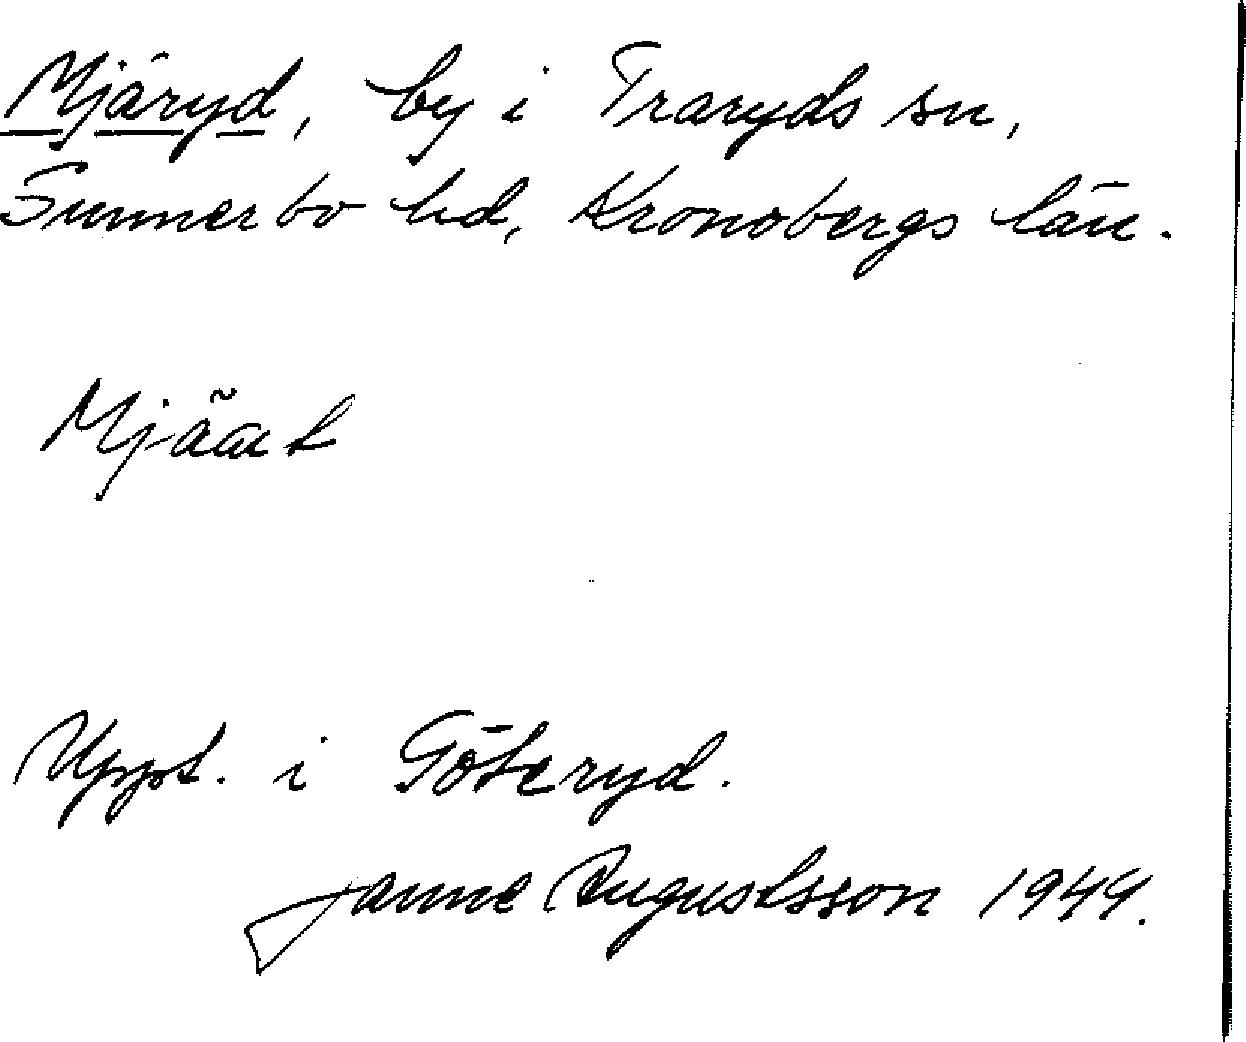 Mjäryd, by i Traryds sn,
Sunnerbo hd, Kronobergs län.
Uppt. i Göteryd.
Janne Augustsson 1949.